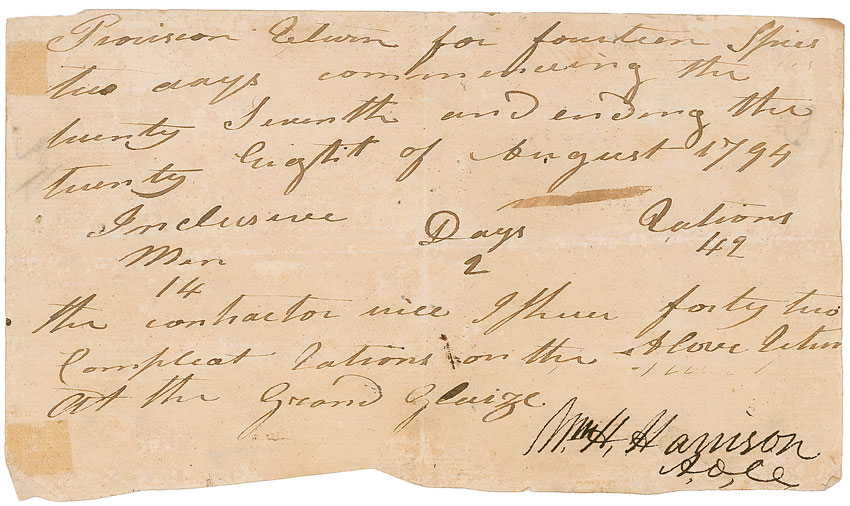 Provision Return for fourteen Spies
two days commencing the
twenty Seventh and ending the
twenty Eight of August 1794
Inclusive
Men Days Rations
14 2 42
the contractor will Ishue forty two
Compleat Rations on the Above Return
At the Grand Glaize
Wm. H. Harrison
A.D.C.